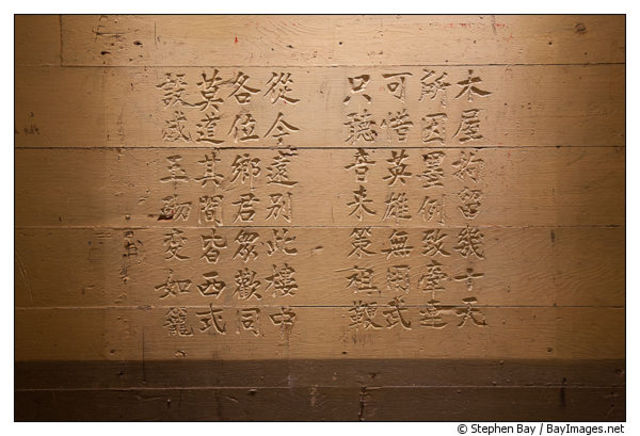 木屋拘留幾十天
所因墨例致牽連
可惜英雄無用武
只聽音來策祖鞭
從今遠別此樓中
各位鄉君眾歡同
莫道其間皆西式
設成玉砌變如籠
© Stephen Bay / BayImages.net